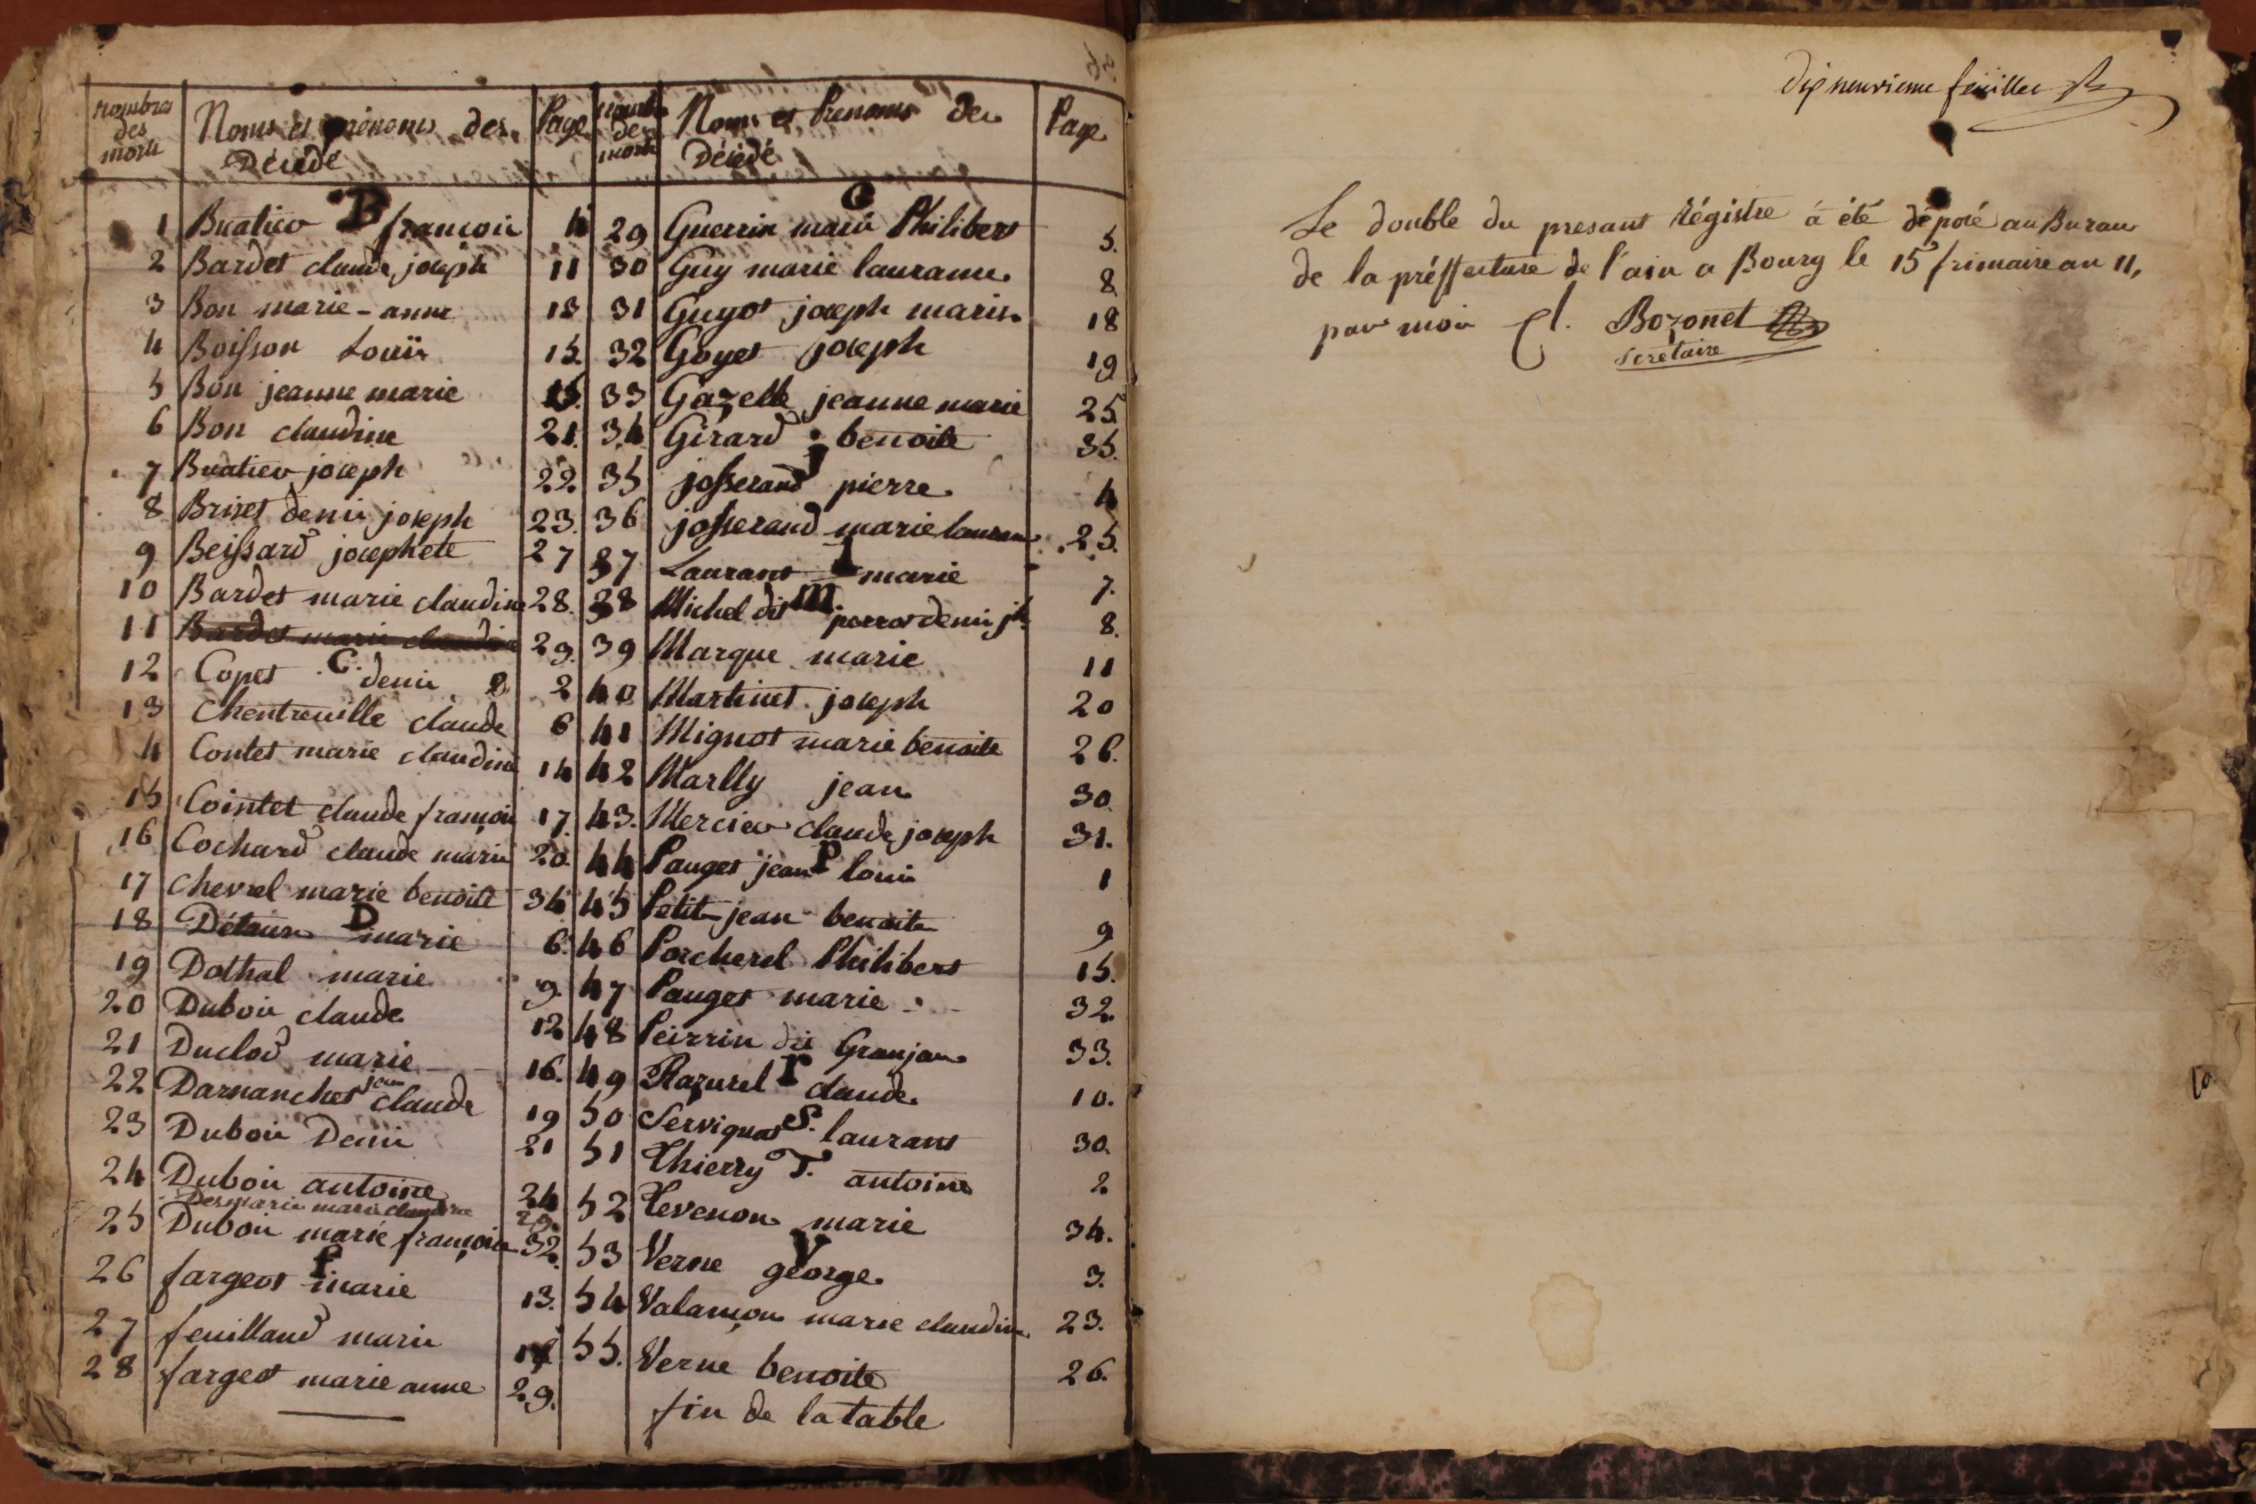 nombres des morts | Noms et prénoms des Décédé | Page
B
1 Buatier françois 4
2 Bardet claude joseph 11
3 Bon marie-anne 13
4 Boisson Louïs 15.
5 Bon jeanne marie
6 Bon claudine 21.
7 Buatier joseph 22.
8 Briset denis joseph 23.
9 Beissard josephete 27
10 Bardet marie claudine 28.
11 Bardet marie claudine 29.
C.
12 Copet denis 2
13 Chentreuille claude 6
14 Contet marie claudine 14
15 Cointet claude françois 17.
16 Cochard claude marie 20.
17 chevrel marie benoite 34
D
18 marie 6.
19 Dothal marie 9.
20 Dubois claude 12
21 Duclod marie 16.
22 Darnanchet jean claude 19
23 Dubois Denis 21
24 Dubois antoine 24
marie claudine 29.
25 Dubois marie françoise 32.
f
26 fargeot marie 13.
27 feuilland marie
28 farget marie anne 29.
nombre des morts | Noms et Prenoms des Décédé | Page
G
29 Guerrin marie Philibert 5.
30 Guy marie lauranne 8
31 Guyot joseph marie 18
32 Goyet joseph 19
33 Gazelle jeanne marie 25.
34 Girard benoite 35.
j
35 josserand pierre 4
36 josserand marie 25.
L
37 Laurant marie 7.
m
38 Michel dit perrot denis jh 8.
39 Marque marie 11
40 Martinet joseph 20
41 Mignot marie benoite 26.
42 Marlly jean 30
43. Mercier claude joseph 31.
P
44 Pauget jean louis 1
45 Petit-jean benoite 9
46 Porcherel Philibert 15.
47 Pauget marie 32.
48 Peirrin dit Granjean 33.
r
49 Razurel claude 10.
S.
50 Servignat laurant 30.
T.
51 Thierry antoine 2
52 Tevenon marie 34.
V
53 Verne george 3.
54 Valançon marie claudine 23.
55. Verne benoite 26.
fin de la table
dix neuvieme feuillet
Le double du presant régistre a été déposé au Bureau
de la préffecture de l'ain a Bourg le 15 frimaire an 11,
par moi Cl. Bozonet
Secretaire